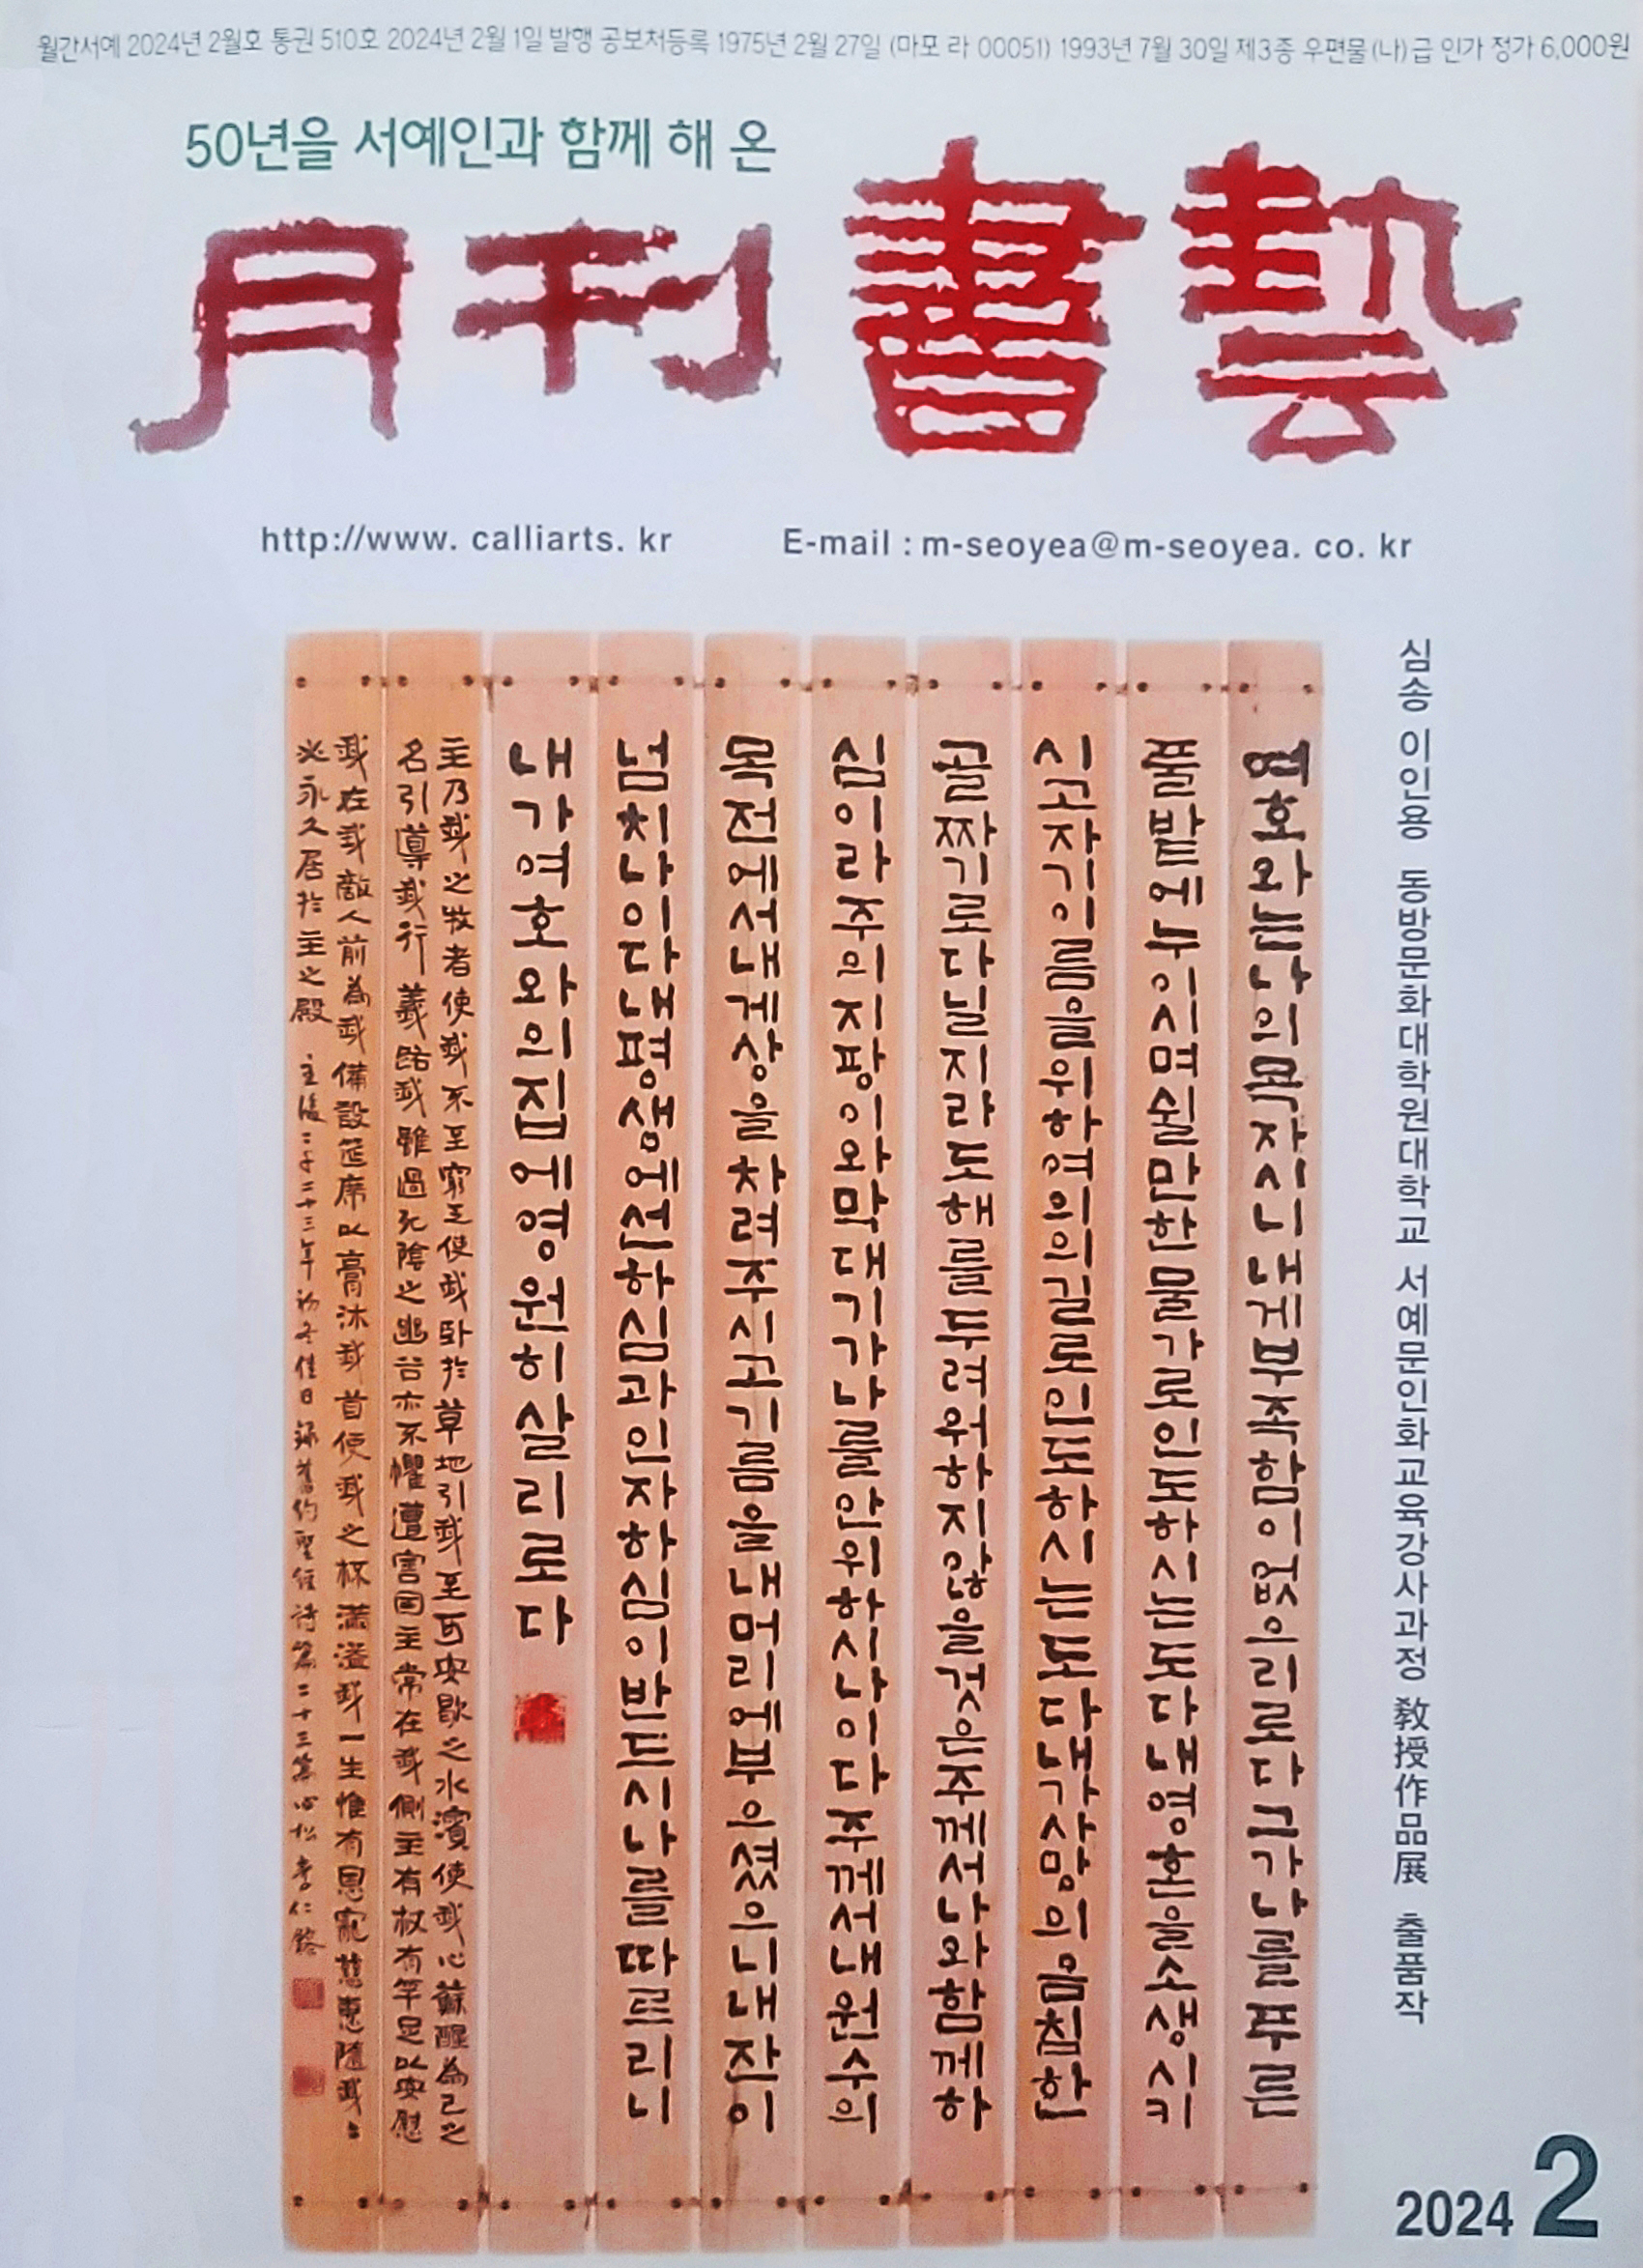 월간서예 2024년 2월호 통권 510호 2024년 2월 1일 발행 공보처등록 1975년 2월 27일 (마포 라 00051) 1993년 7월 30일 제3종 우편물(나)급 인가 정가 6,000원
50년을 서예인과 함께 해 온
月刊 書藝
http://www. calliarts. kr
E-mail : m-seoyea@m-seoyea. co. kr
심송 이인용 동방문화대학원대학교 서예문인화교육강사과정 敎授作品展 출품작
여호와는나의목자시니내게부족함이없으리로다그가나를푸른
풀밭에누이시며쉴만한물가로인도하시는도다내영혼을소생시키
시고자기이름을위하여의의길로인도하시는도다내가사망의음침한
골짜기로다닐지라도해를두려워하지않을것은주께서나와함께하
심이라주의지팡이와막대기가나를안위하시나이다주께서내원수의
목전에서내게상을차려주시고기름을내머리에부으셨으니내잔이
넘치나이다내평생에선하심과인자하심이반드시나를따르리니
내가여호와의집에영원히살리로다
主乃我之牧者使我不至窮乏使我臥於草地引我至可安歇之水濱使我心蘇醒為己之
名引導我行義路我雖過死陰之幽谷亦不懼遭害因主常在我側主有杖有竿足以安慰
我在我敵人前為我備設筵席以膏沐我首使我之杯滿溢我一生惟有恩寵慈惠隨我我
必永久居於主之殿 主後二千二十三年初冬佳日 錄舊約聖經詩篇二十三篇 心松 李仁鎔
2024 2